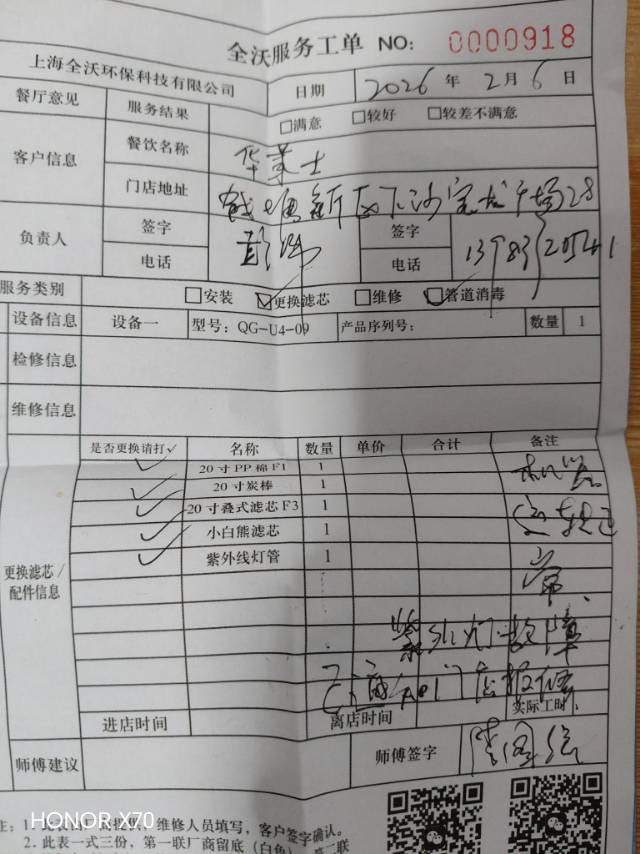 全沃服务工单 NO: 0000918
上海全沃环保科技有限公司 日期 2026 年 2 月 6 日
餐厅意见 服务结果 □满意 □较好 □较差不满意
客户信息 餐饮名称 华莱士
门店地址 钱塘新区下沙宝龙广场28
负责人 签字 签字
电话 电话
服务类别 □安装 ☑更换滤芯 □维修 ☑管道消毒
设备信息 设备一 型号: QG-U4-09 产品序列号: 数量 1
检修信息
维修信息
是否更换请打✓ 名称 数量 单价 合计 备注
✓ 20寸PP棉F1 1
✓ 20寸炭棒 1
✓ 20寸叠式滤芯F3 1
✓ 小白熊滤芯 1
✓ 紫外线灯管 1
更换滤芯/
配件信息
紫外灯故障
已通知门店报修
进店时间 离店时间 实际工时
师傅建议 师傅签字
维修人员填写，客户签字确认。
2. 此表一式三份，第一联厂商留底（白色）
HONOR X70